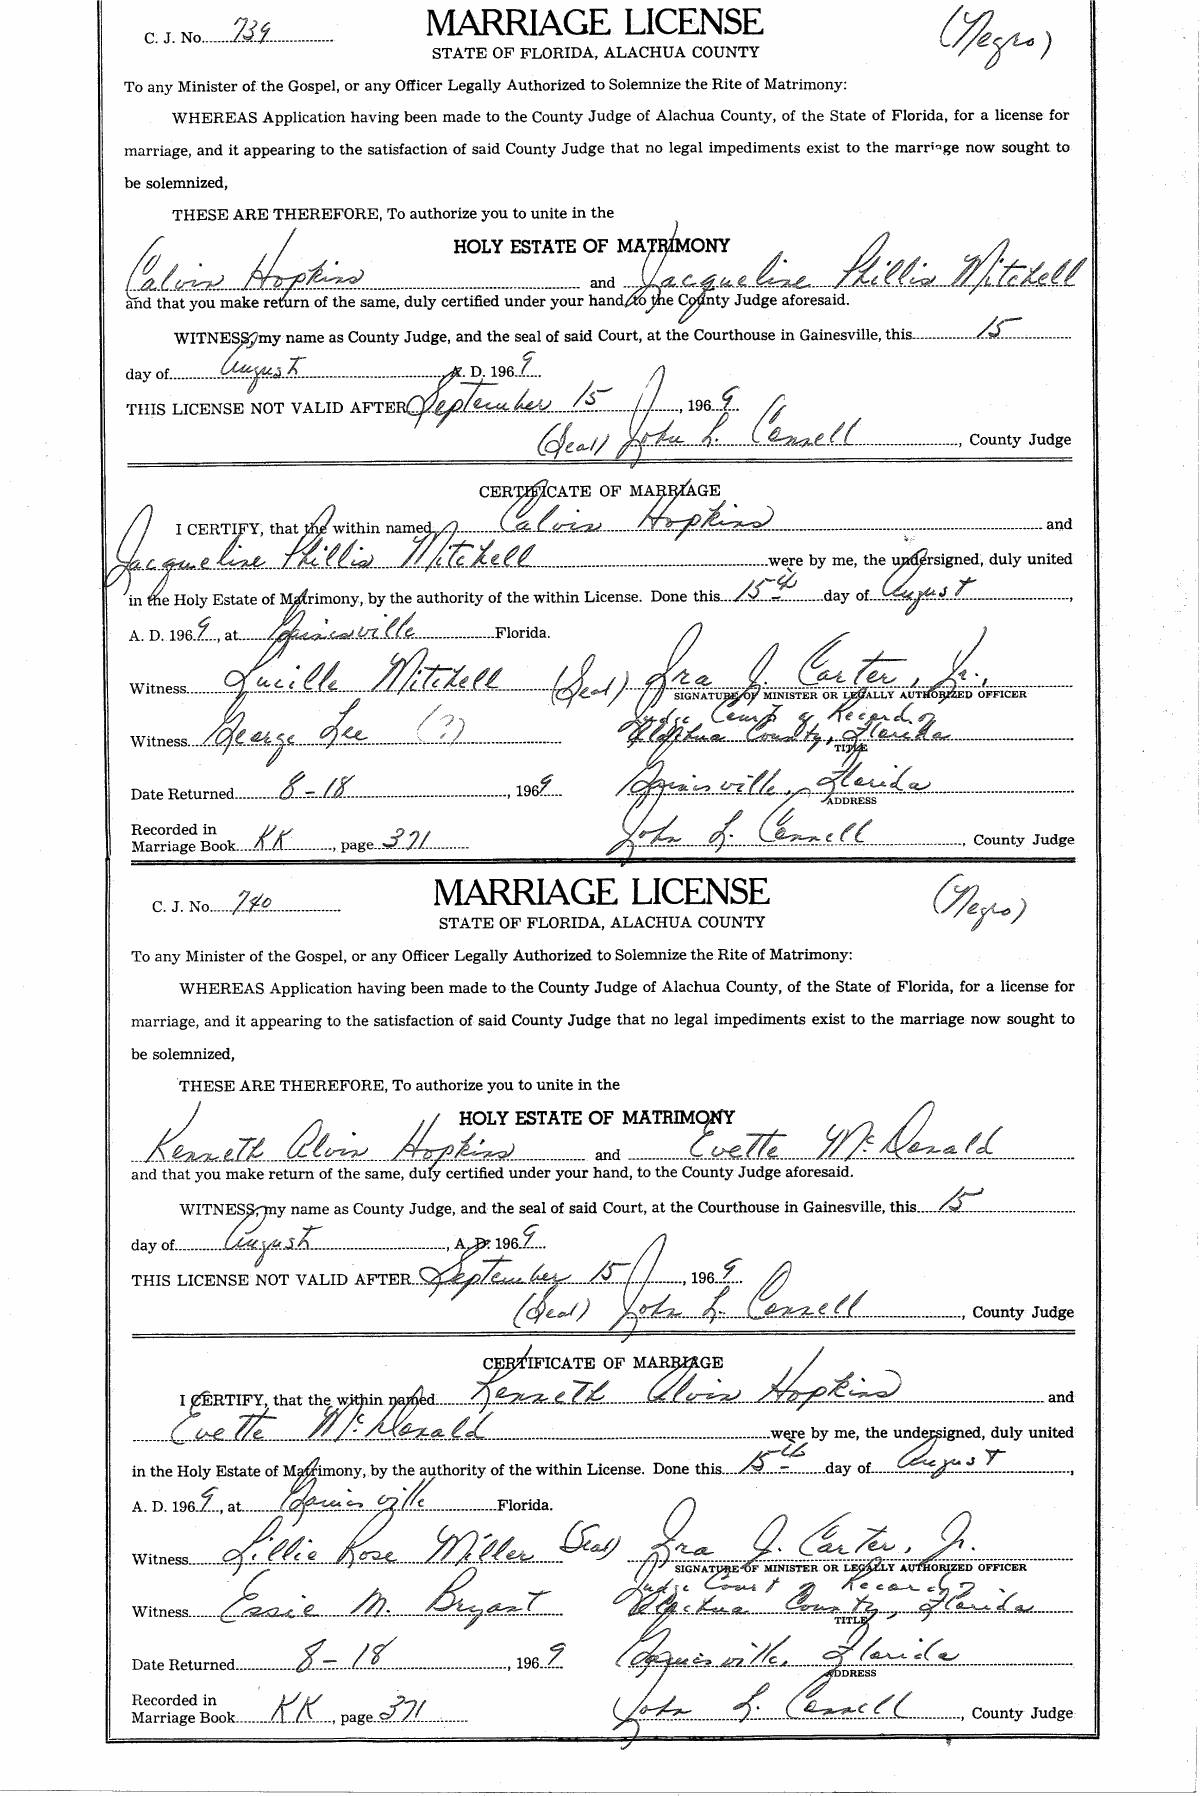 C. J. No. 739
MARRIAGE LICENSE
(Negro)
STATE OF FLORIDA, ALACHUA COUNTY
To any Minister of the Gospel, or any Officer Legally Authorized to Solemnize the Rite of Matrimony:
WHEREAS Application having been made to the County Judge of Alachua County, of the State of Florida, for a license for
marriage, and it appearing to the satisfaction of said County Judge that no legal impediments exist to the marriage now sought to
be solemnized,
THESE ARE THEREFORE, To authorize you to unite in the
HOLY ESTATE OF MATRIMONY
Calvin Hopkins and Jacqueline Phillis Mitchell
and that you make return of the same, duly certified under your hand, to the County Judge aforesaid.
WITNESS, my name as County Judge, and the seal of said Court, at the Courthouse in Gainesville, this 15
day of August A. D. 1969
THIS LICENSE NOT VALID AFTER September 15, 1969
(Seal) John L. Connell, County Judge
CERTIFICATE OF MARRIAGE
I CERTIFY, that the within named Calvin Hopkins and
Jacqueline Phillis Mitchell were by me, the undersigned, duly united
in the Holy Estate of Matrimony, by the authority of the within License. Done this 15th day of August,
A. D. 1969, at Gainesville Florida.
Witness Lucille Mitchell (Seal) Ira J. Carter, Jr.,
SIGNATURE OF MINISTER OR LEGALLY AUTHORIZED OFFICER
Judge Court of Record of
Witness George Lee (?) Alachua County, Florida
TITLE
Date Returned 8-18, 1969 Gainesville, Florida
ADDRESS
Recorded in
Marriage Book KK, page 371 John L. Connell, County Judge
C. J. No. 740
MARRIAGE LICENSE
(Negro)
STATE OF FLORIDA, ALACHUA COUNTY
To any Minister of the Gospel, or any Officer Legally Authorized to Solemnize the Rite of Matrimony:
WHEREAS Application having been made to the County Judge of Alachua County, of the State of Florida, for a license for
marriage, and it appearing to the satisfaction of said County Judge that no legal impediments exist to the marriage now sought to
be solemnized,
THESE ARE THEREFORE, To authorize you to unite in the
HOLY ESTATE OF MATRIMONY
Kenneth Alvin Hopkins and Evette McDonald
and that you make return of the same, duly certified under your hand, to the County Judge aforesaid.
WITNESS, my name as County Judge, and the seal of said Court, at the Courthouse in Gainesville, this 15
day of August, A. D. 1969
THIS LICENSE NOT VALID AFTER September 15, 1969
(Seal) John L. Connell, County Judge
CERTIFICATE OF MARRIAGE
I CERTIFY, that the within named Kenneth Alvin Hopkins and
Evette McDonald were by me, the undersigned, duly united
in the Holy Estate of Matrimony, by the authority of the within License. Done this 15th day of August,
A. D. 1969, at Gainesville Florida.
Witness Lillie Rose Miller (Seal) Ira J. Carter, Jr.
SIGNATURE OF MINISTER OR LEGALLY AUTHORIZED OFFICER
Judge Court of Record of
Witness Essie M. Bryant Alachua County, Florida
TITLE
Date Returned 8-18, 1969 Gainesville, Florida
ADDRESS
Recorded in
Marriage Book KK, page 371 John L. Connell, County Judge